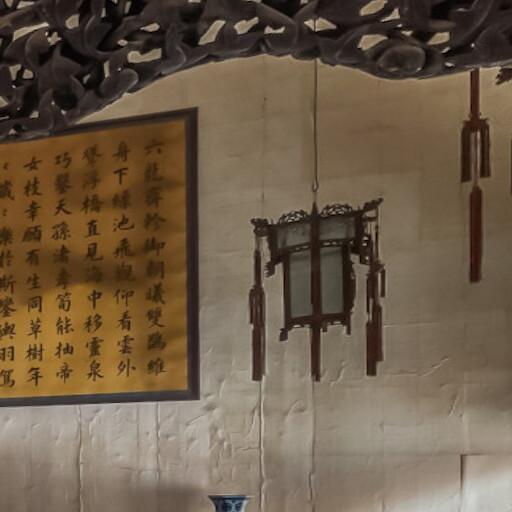 六龍齊軫御朝曦雙鷁維
舟下綠池飛觀仰看雲外
聳浮橋直見海中移靈泉
巧鑿天孫渚孝筍能抽帝
女枝幸願有生同草樹年
々歲々樂於斯鑾輿羽駕